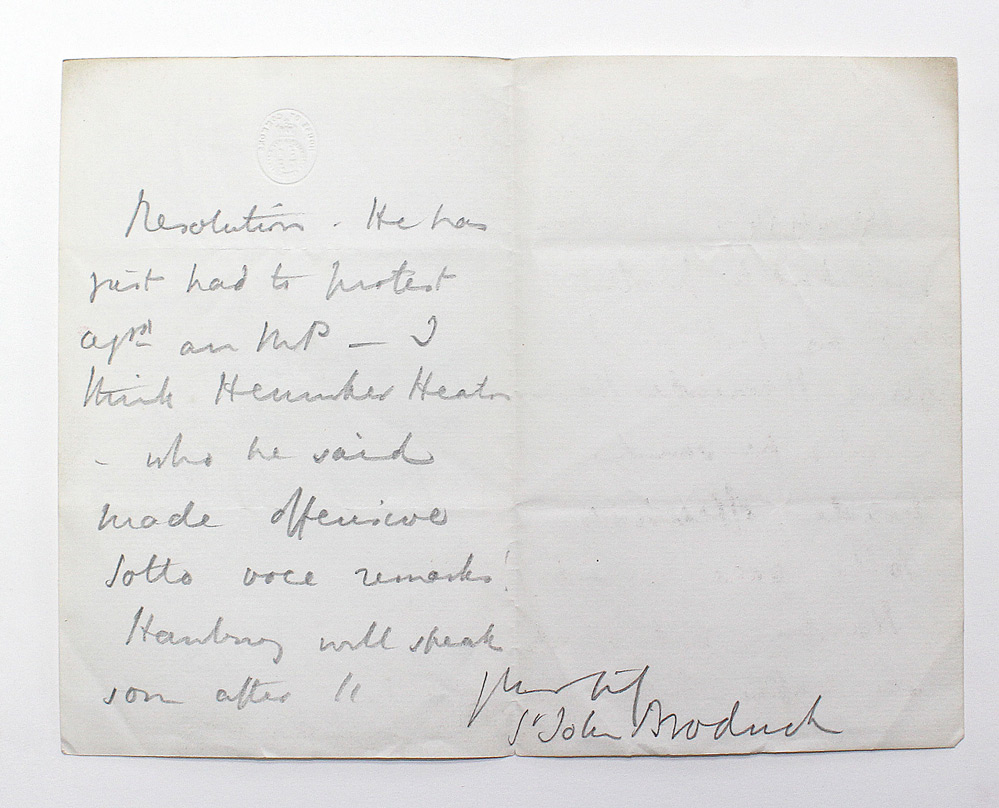 Resolution. He has
just had to protest
agst an MP – I
think Henniker Heaton
– who he said
made offensive
sotto voce remarks!
Hanbury will speak
soon after 11
St John Brodrick